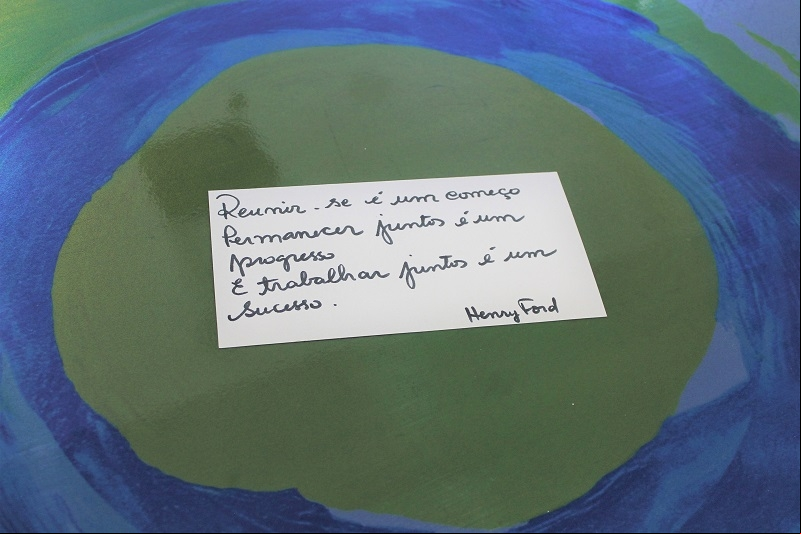 Reunir-se é um começo
Permanecer juntos é um
progresso
E trabalhar juntos é um
sucesso.
Henry Ford